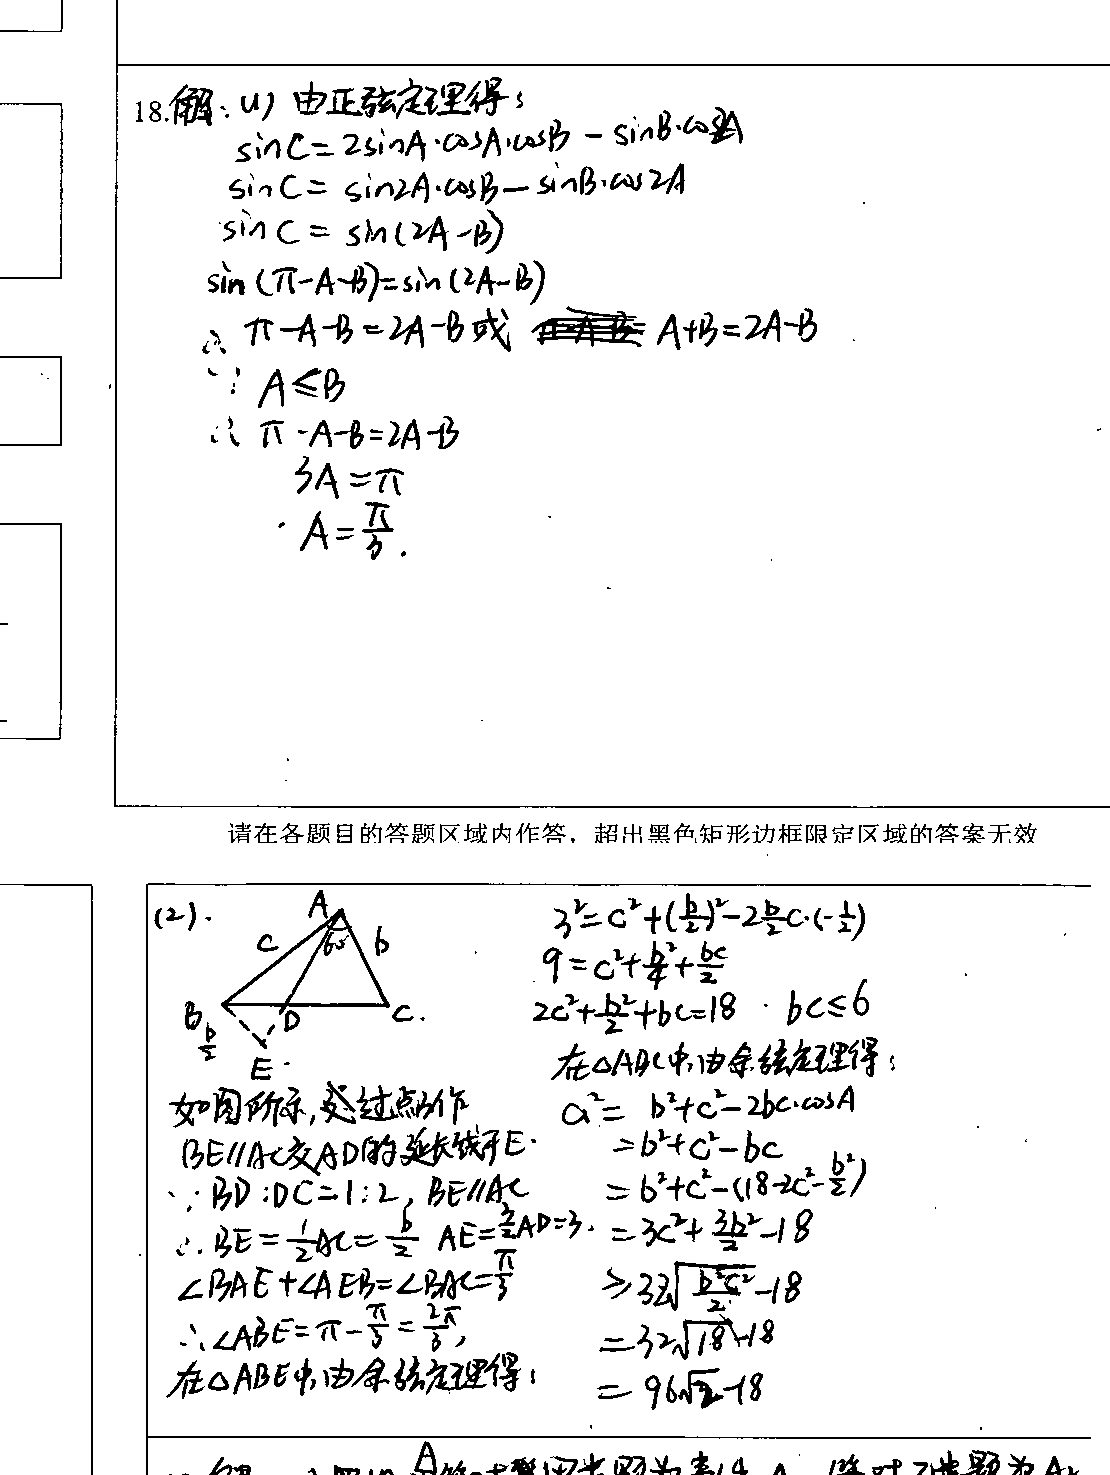 18.解:(1)由正弦定理得:
sinC=2sinA·cosA·cosB-sinB·cos2A
sinC=sin2A·cosB-sinB·cos2A
sinC=sin(2A-B)
sin(π-A-B)=sin(2A-B)
∴π-A-B=2A-B或 A+B=2A-B
∵A≤B
∴π-A-B=2A-B
3A=π
A=π/3.
请在各题目的答题区域内作答,超出黑色矩形边框限定区域的答案无效
(2).
A
c 60° b
B D C.
b/2
E
如图所示,过点B作
BE//AC交AD的延长线于E.
∵BD:DC=1:2,BE//AC
∴BE=1/2AC=b/2 AE=3/2AD=3.
∠BAE+∠AEB=∠BAC=π/3
∴∠ABE=π-π/3=2π/3,
在△ABE中,由余弦定理得:
3²=c²+(b/2)²-2b/2c·(-1/2)
9=c²+b²/4+bc/2
2c²+b²/2+bc=18 bc≤6
在△ABC中,由余弦定理得:
a²=b²+c²-2bc·cosA
=b²+c²-bc
=b²+c²-(18-2c²-b²/2)
=3c²+3b²/2-18
-18
-18
-18